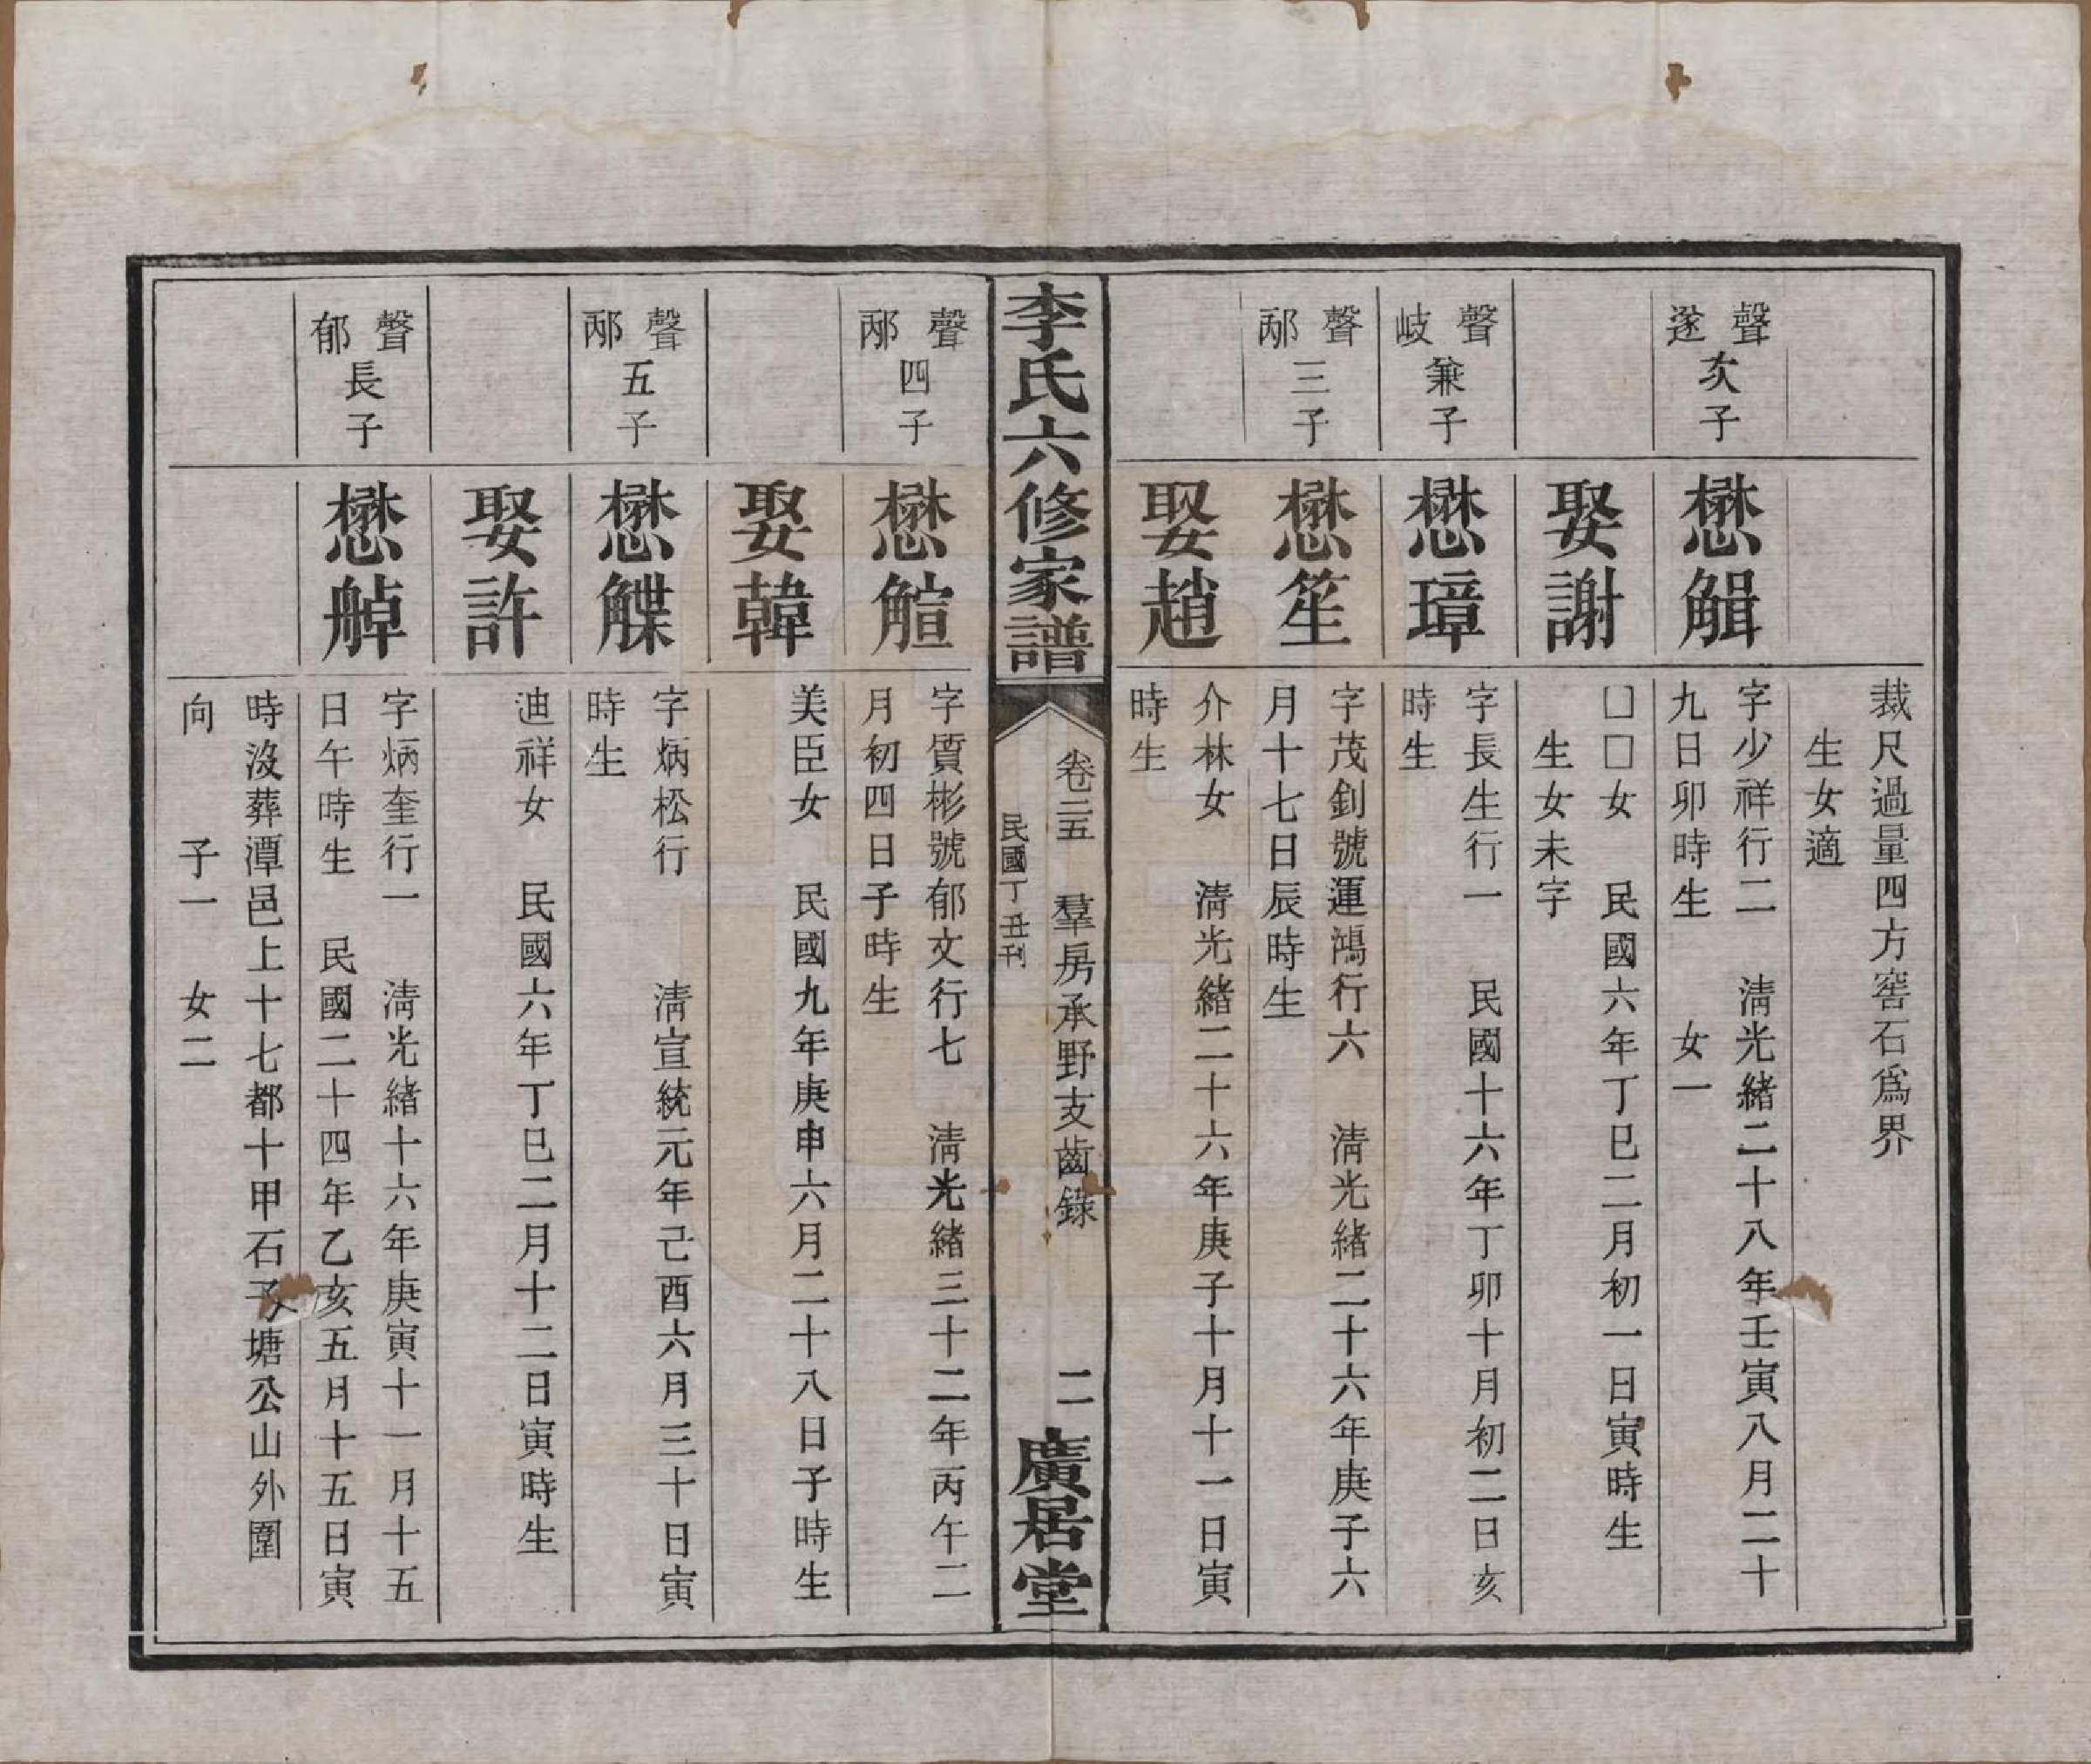 裁尺過量四方窖石爲界
生女適
聲遂次子
懋觶
字少祥行二　清光緒二十八年壬寅八月二十
九日卯時生　女一
娶謝
□□女　民國六年丁巳二月初一日寅時生
生女未字
聲岐兼子
懋璋
字長生行一　民國十六年丁卯十月初二日亥
時生
聲邴三子
懋笙
字茂釗號運鴻行六　清光緒二十六年庚子六
月十七日辰時生
娶趙
介林女　清光緒二十六年庚子十月十一日寅
時生
李氏六修家譜
卷二五　羣房承野支齒錄
民國丁丑刊
二
廣居堂
聲邴四子
懋䚙
字質彬號郁文行七　清光緒三十二年丙午二
月初四日子時生
娶韓
美臣女　民國九年庚申六月二十八日子時生
聲邴五子
懋
字炳松行　清宣統元年己酉六月三十日寅
時生
娶許
迪祥女　民國六年丁巳二月十二日寅時生
聲郁長子
懋
字炳奎行一　清光緒十六年庚寅十一月十五
日午時生　民國二十四年乙亥五月十五日寅
時沒葬潭邑上十七都十甲石子塘公山外圍
向　子一　女二